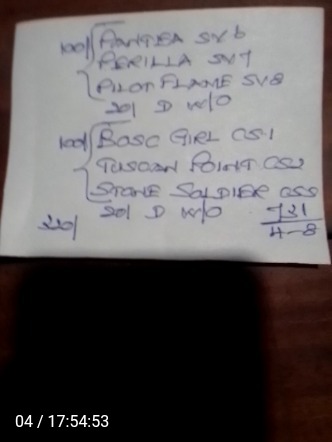 100/ PANTHEA SV6
PERILLA SV7
PILOT FLAME SV8
20/ D W/O
100/ BOSC GIRL CS1
TUSCAN POINT CS2
STONE SOLDIER CS9
20/ D W/O
220/
4-8
04 / 17:54:53